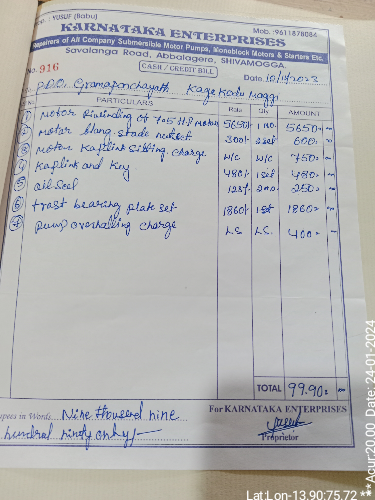 : YUSUF (Babu)
Mob. :9611878084
KARNATAKA ENTERPRISES
Repairers of All Company Submersible Motor Pumps, Monoblock Motors & Starters Etc.
Savalanga Road, Abbalagere, SHIVAMOGGA.
No. 916
CASH / CREDIT BILL
Date 10/11/2023
P.D.O. Gramapanchayath Kagekodumaggi
PARTICULARS Rate Qty AMOUNT
1 Motor Rivinding of 7.5 H.P Motor 5650/- 1 no. 5650=00
2 Motor 300/- 2 set 600=
3 Motor Kaplink sitting charge W/C W/C 750=
4 Kaplink and Key 480/- 1 set 480=
5 oil seal 125/- 2 no. 250=
6 trast bearing plate set 1860/- 1 st 1860=
7 pump overhalling charge L.S. L.S. 400=
TOTAL 99.90=
Rupees in Words Nine thousend nine
hundral ninety only/-
For KARNATAKA ENTERPRISES
Proprietor
Lat:Lon-13.90:75.72
***Acur:20.00 Date: 24-01-2024